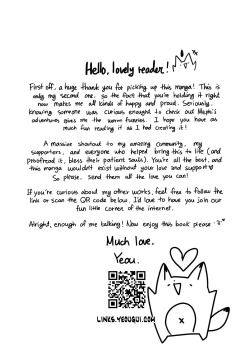 Hello, lovely reader!
First off, a huge thank you for picking up this manga! This is
only my second one, so the fact that you're holding it right
now makes me all kinds of happy and proud. Seriously,
knowing someone was curious enough to check out Mephi's
adventures gives me the warm fuzzies. I hope you have as
much fun reading it as I had creating it!
A massive shoutout to my amazing community, my
supporters, and everyone who helped bring this to life (and
proofread it, bless their patient souls). You're all the best, and
this manga wouldn't exist without your love and support
So please, send them all the love you can!
If you're curious about my other works, feel free to follow the
link or scan the QR code below. I'd love to have you join our
fun little corner of the internet.
Alright, enough of me talking! Now enjoy this book please
Much love,
Yeou.
LINKS.YEOUGUI.COM